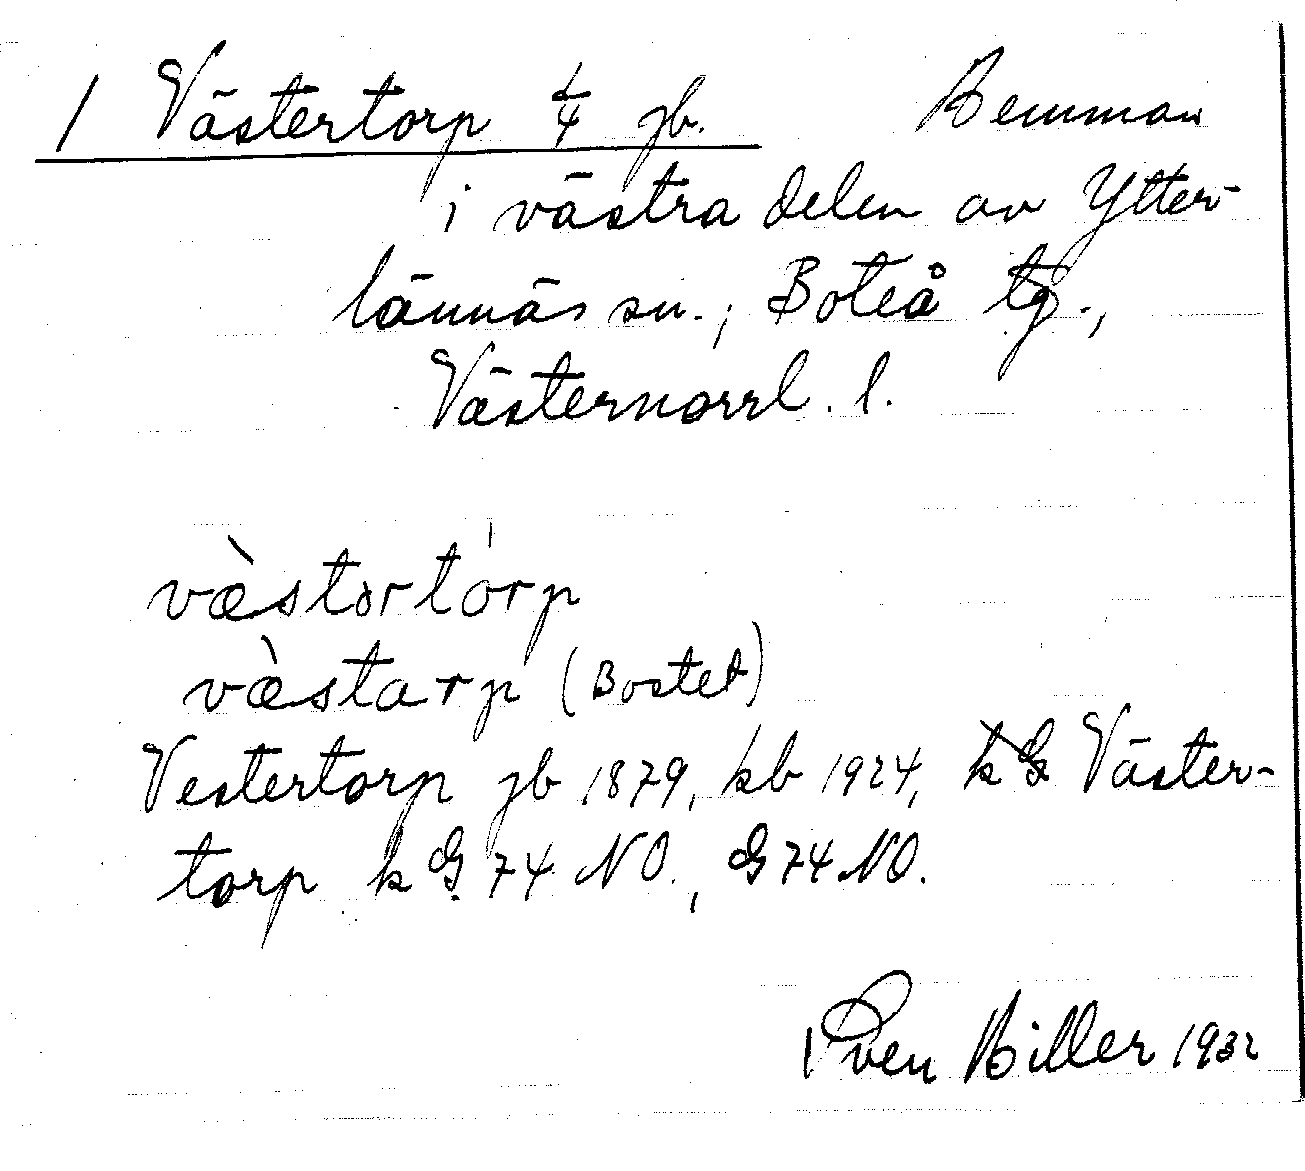 1 Västertorp 1/4 jb. Hemman
i västra delen av Ytter-
lännäs sn., Boteå tg.,
Västernorrl. l.
væ̀stərtórp
væ̀starp (Bostet)
Vestertorp jb 1879, kb 1924, k G Väster-
torp k G 74 NO., G 74 NO.
Sven Hiller 1932